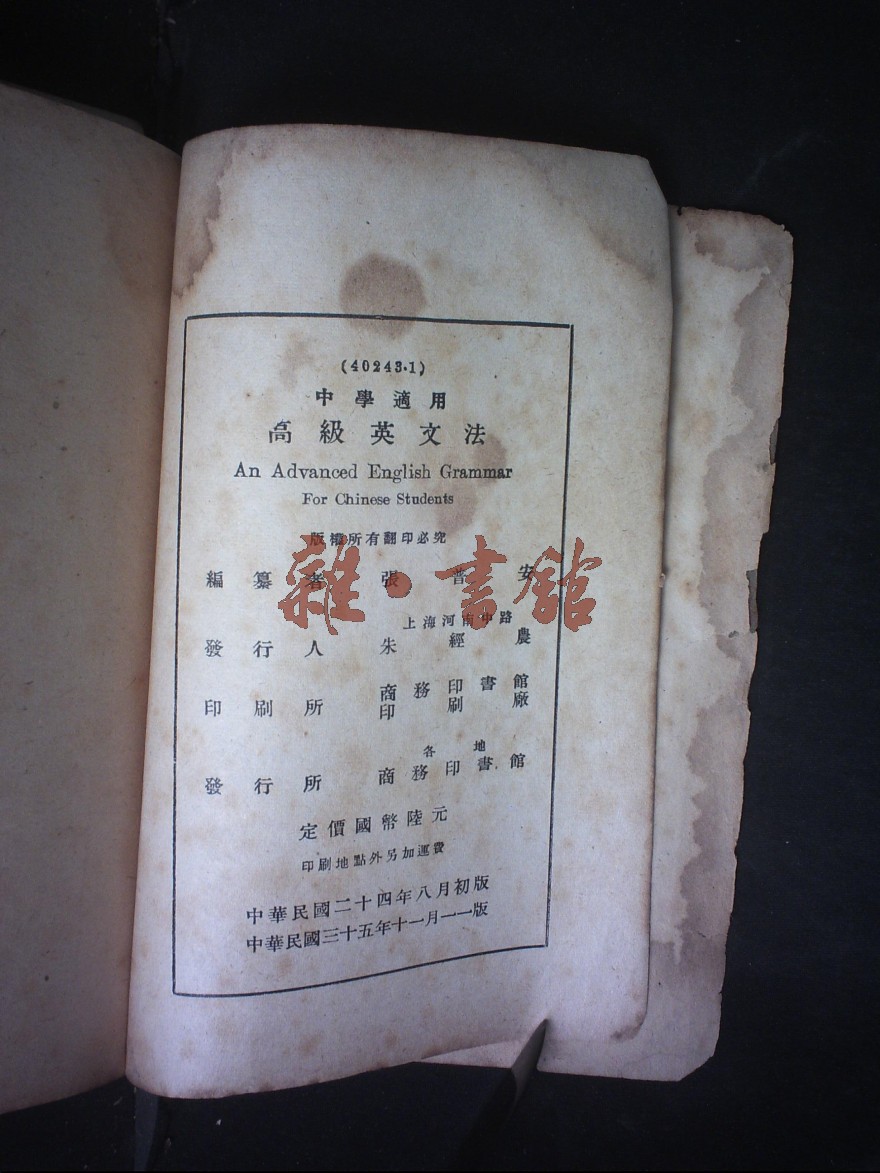 (40243·1)
中學適用
高級英文法
An Advanced English Grammar
For Chinese Students
版權所有翻印必究
編纂者 張普安
上海河南中路
發行人 朱經農
印刷所 商務印書館
印刷廠
各地
發行所 商務印書館
定價國幣陸元
印刷地點外另加運費
中華民國二十四年八月初版
中華民國三十五年十一月一一版
雜·書館